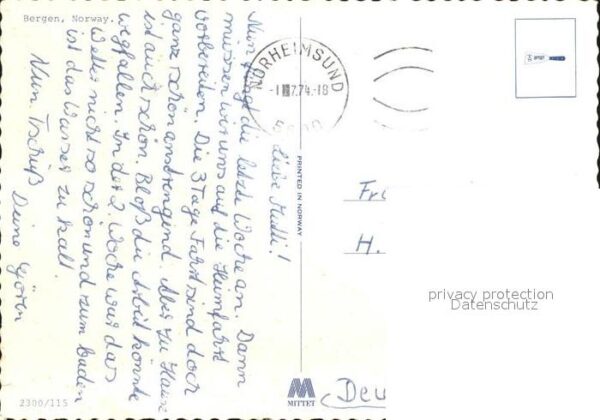 Bergen, Norway.
NORHEIMSUND
-1 7.74.-18
5600
Liebe Mutti!
Nun fängt die letzte Woche an. Dann
müssen wir uns auf die Heimfahrt
vorbereiten. Die 3 Tage Fahrt sind doch
ganz schön anstrengend. Aber zu Hause
ist auch schön. Bloß die Arbeit könnte
wegfallen. In der 2. Woche war das
Wetter nicht so schön und zum baden
ist das Wasser zu kalt.
Nun Tschüß
Deine
PRINTED IN NORWAY
Fr
H.
Deu
privacy protection
Datenschutz
2300/115
MITTET